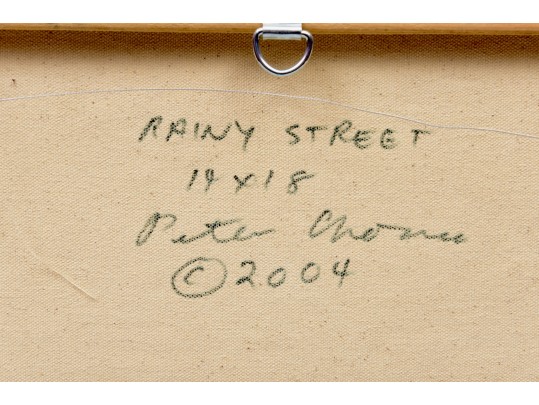 RAINY STREET
14x18
Peter
©2004